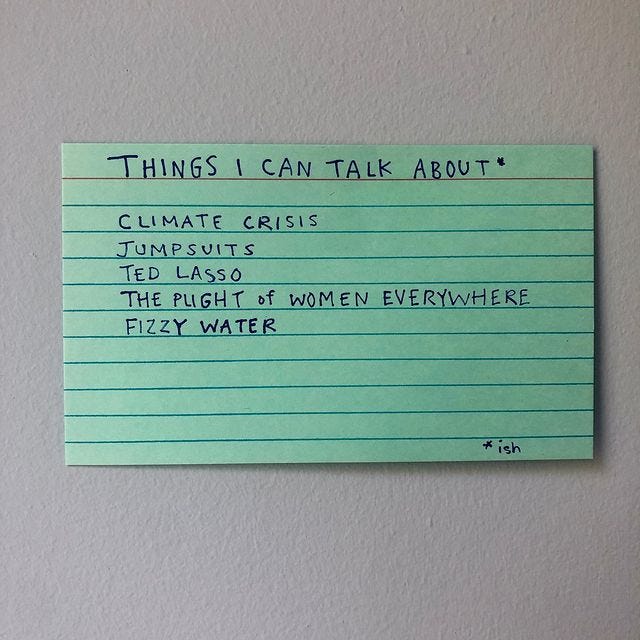 THINGS I CAN TALK ABOUT*
CLIMATE CRISIS
JUMPSUITS
TED LASSO
THE PLIGHT of WOMEN EVERYWHERE
FIZZY WATER
*ish